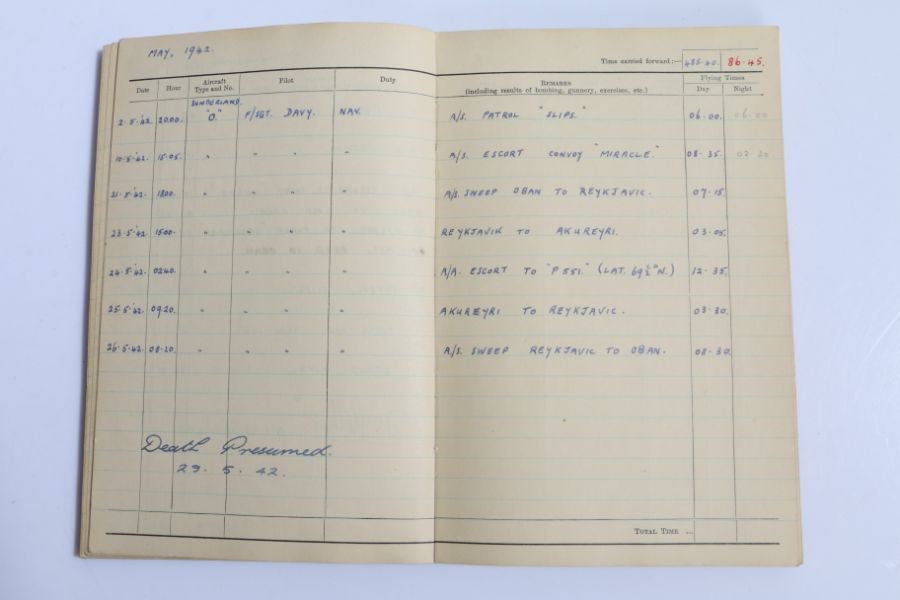 MAY, 1942.
Time carried forward:— 485·40. 86·45.
Date Hour Aircraft Type and No. Pilot Duty REMARKS (including results of bombing, gunnery, exercises, etc.) Flying Times Day Night
SUNDERLAND.
2·5·'42. 2000. "O." F/SGT. DAVY. NAV. A/S. PATROL "SLIPS. 06·00. 06·00
10·5·'42. 15·05. " " " " A/S. ESCORT CONVOY "MIRACLE." 08·35. 02·30
21·5·'42. 1800. " " " " A/S. SWEEP OBAN TO REYKJAVIC. 07·15.
23·5·'42. 1500. " " " " REYKJAVIK TO AKUREYRI. 03·05.
24·5·'42. 0240. " " " " A/A. ESCORT TO "P551." (LAT. 69½°N.) 12·35.
25·5·'42. 09.20. " " " " AKUREYRI TO REYKJAVIC. 03·30.
26·5·42. 08·20. " " " " A/S. SWEEP REYKJAVIC TO OBAN. 08·30.
Death Presumed.
29·5·42.
TOTAL TIME ...